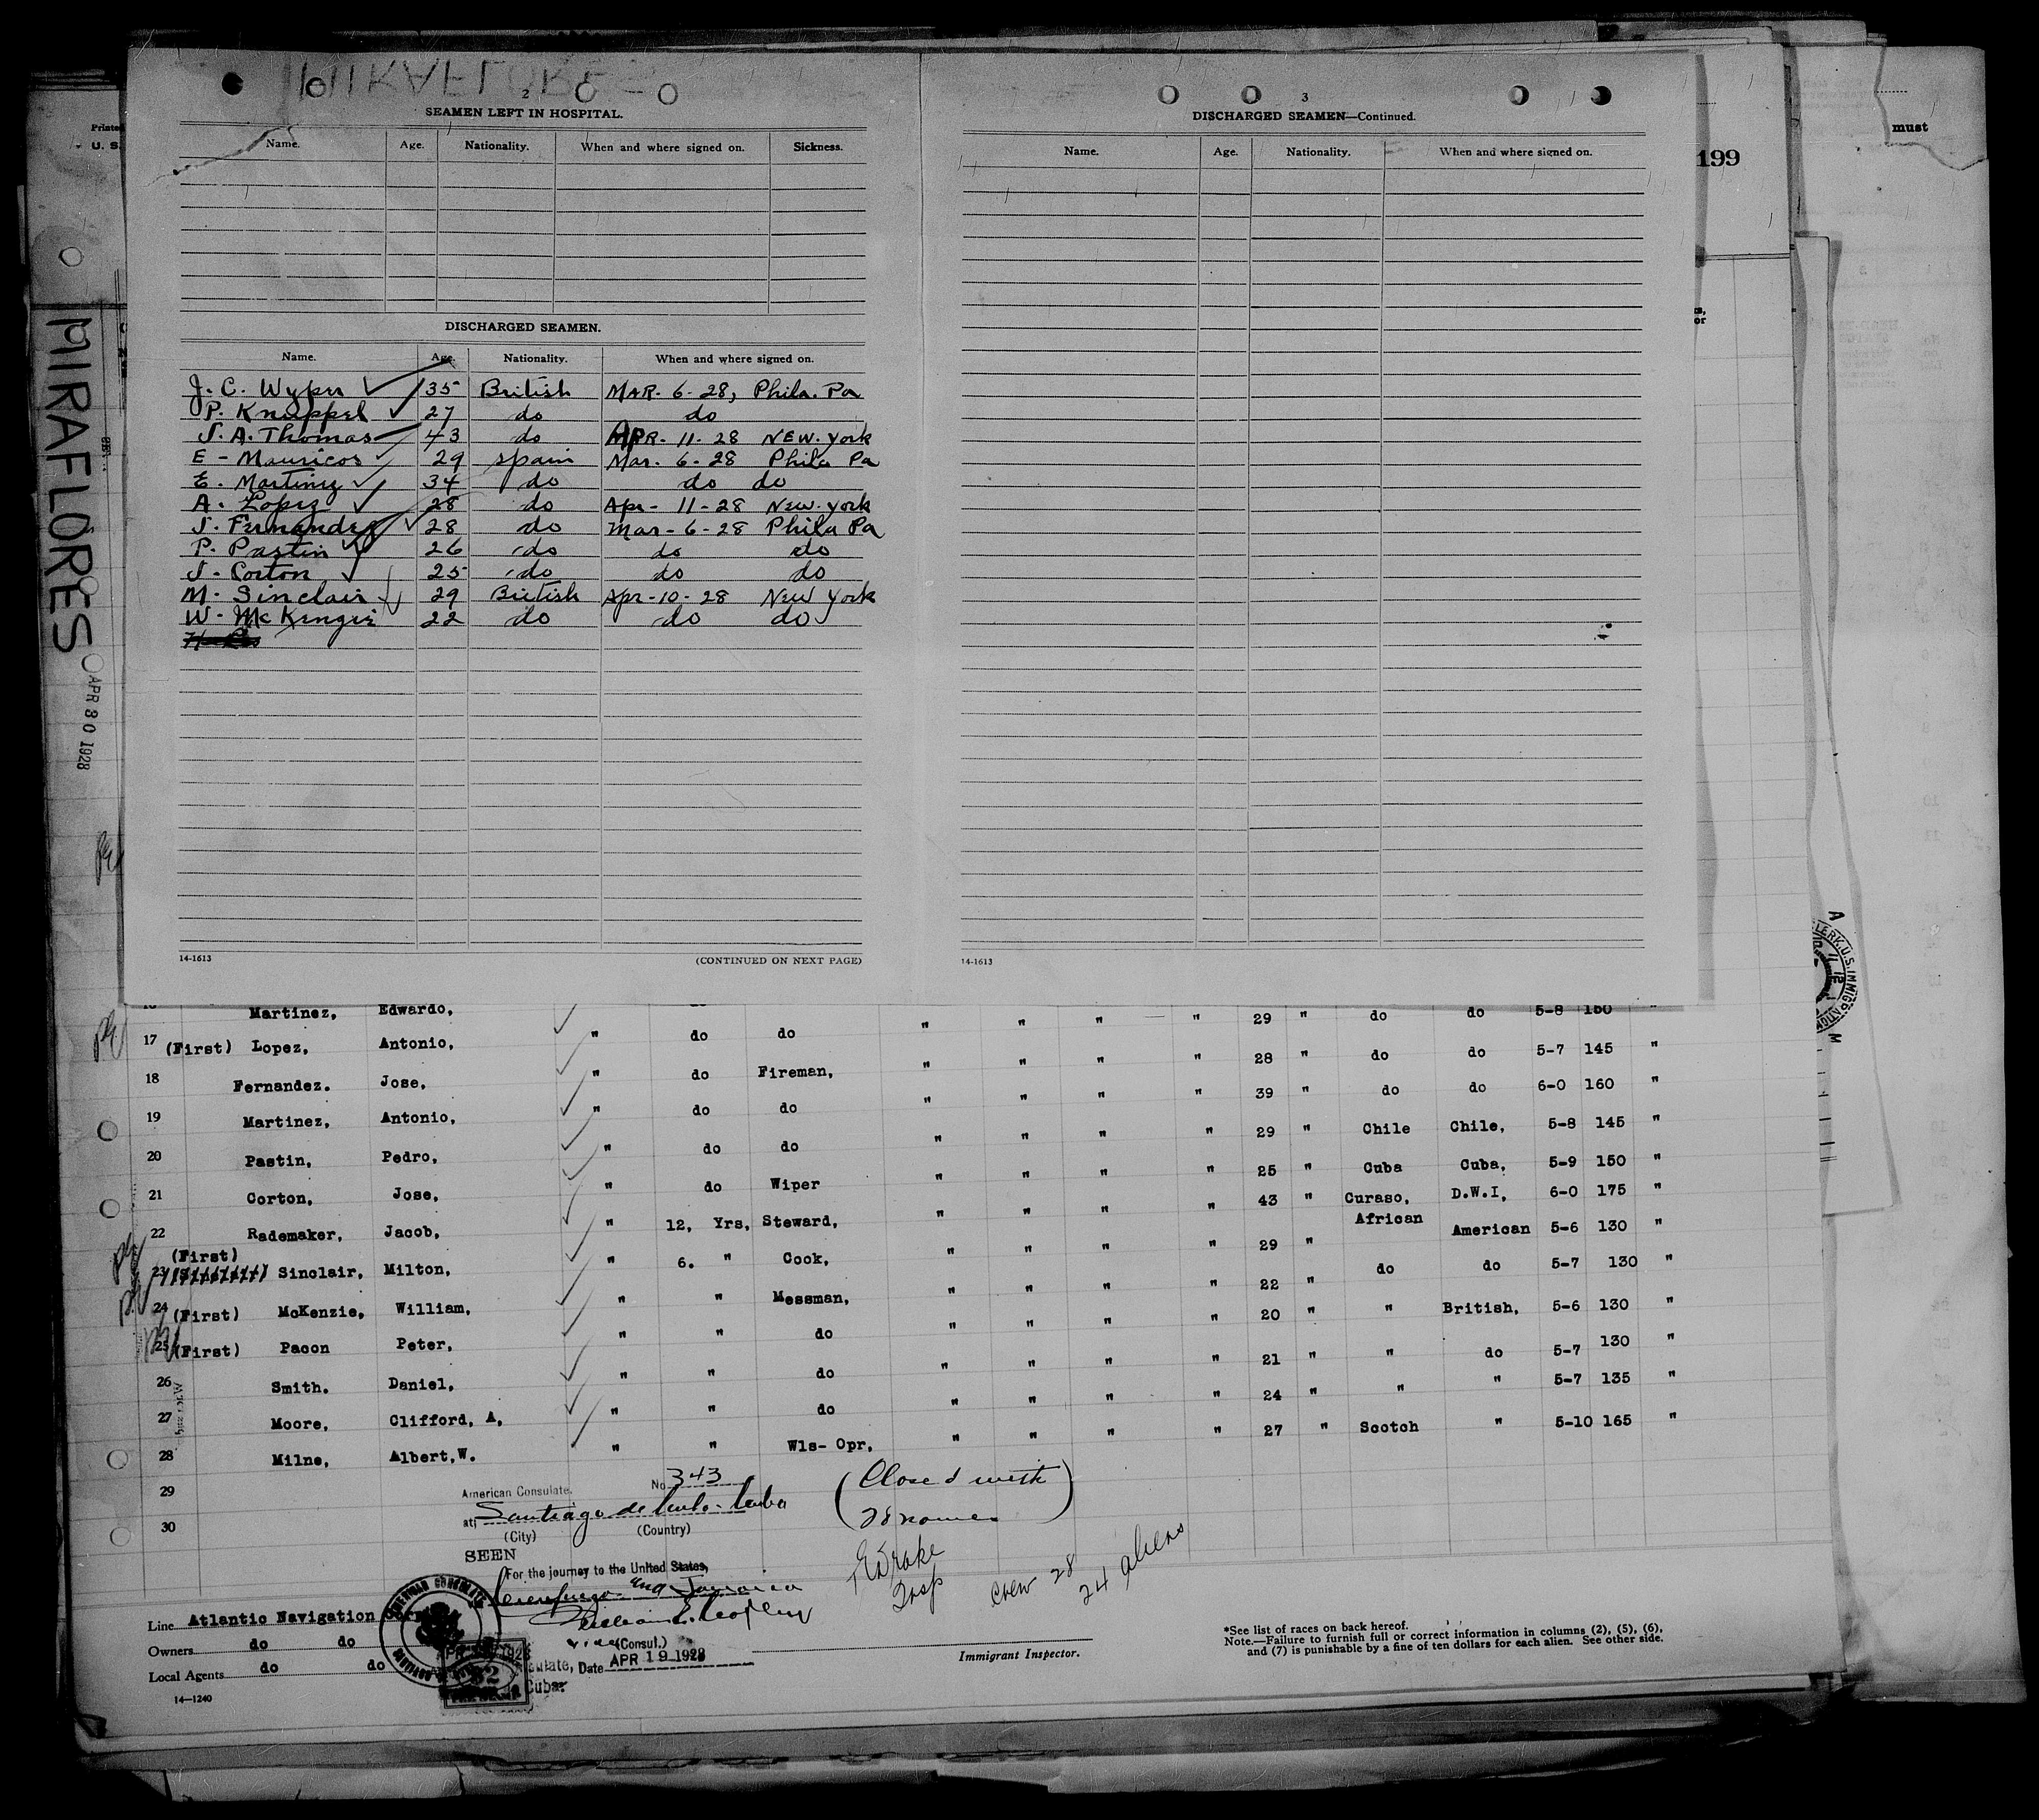 2
SEAMEN LEFT IN HOSPITAL.
Name. Age. Nationality. When and where signed on. Sickness.
DISCHARGED SEAMEN.
Name. Age. Nationality. When and where signed on.
J. C. Wyper 35 British MAR. 6-28, Phila. Pa
P. Knuppel 27 do do
J. A. Thomas 43 do APR. 11-28 NEW. York
E - Mauricos 29 Spain Mar. 6-28 Phila Pa
E. Martinez 34 do do do
A. Lopez 28 do Apr- 11-28 New. york
J. Fernandez 28 do Mar-6-28 Phila Pa
P. Pastin 26 do do do
J. Corton 25 do do do
M. Sinclair 29 British Apr-10-28 New York
W. McKenzie 22 do do do
14-1613 (CONTINUED ON NEXT PAGE)
3
DISCHARGED SEAMEN—Continued.
Name. Age. Nationality. When and where signed on.
14-1613
Printed
U. S.
199
must
MIRAFLORES
APR 30 1928
Martinez, Edwardo, " " " " 29 " do do 5-8 150 "
17 (First) Lopez, Antonio, " do do " " " " 28 " do do 5-7 145 "
18 Fernandez. Jose, " do Fireman, " " " " 39 " do do 6-0 160 "
19 Martinez, Antonio, " do do " " " " 29 " Chile Chile, 5-8 145 "
20 Pastin, Pedro, " do do " " " " 25 " Cuba Cuba, 5-9 150 "
21 Corton, Jose, " do Wiper " " " " 43 " Curaso, D.W.I, 6-0 175 "
22 Rademaker, Jacob, " 12, Yrs, Steward, " " " " 29 " African American 5-6 130 "
23 (First) Sinclair, Milton, " 6. " Cook, " " " " 22 " do do 5-7 130 "
24 (First) McKenzie, William, " " Messman, " " " " 20 " " British, 5-6 130 "
25 (First) Pacon Peter, " " do " " " " 21 " " do 5-7 130 "
26 Smith. Daniel, " " do " " " " 24 " " " 5-7 135 "
27 Moore, Clifford, A, " " do " " " " 27 " Scotch " 5-10 165 "
28 Milne, Albert,W. " " Wls- Opr,
29
30
American Consulate. No 343
at Santiago de Cuba - Cuba
(City) (Country)
SEEN
For the journey to the United States,
Cienfuegos and Jamaica
(Consul.)
Date APR 19 1928
Cuba.
(Closed with
28 names)
Drake
Insp
Crew 28
24 aliens
Line Atlantic Navigation
Owners do do
Local Agents do do
14—1240
Immigrant Inspector.
*See list of races on back hereof.
Note.—Failure to furnish full or correct information in columns (2), (5), (6),
and (7) is punishable by a fine of ten dollars for each alien. See other side.